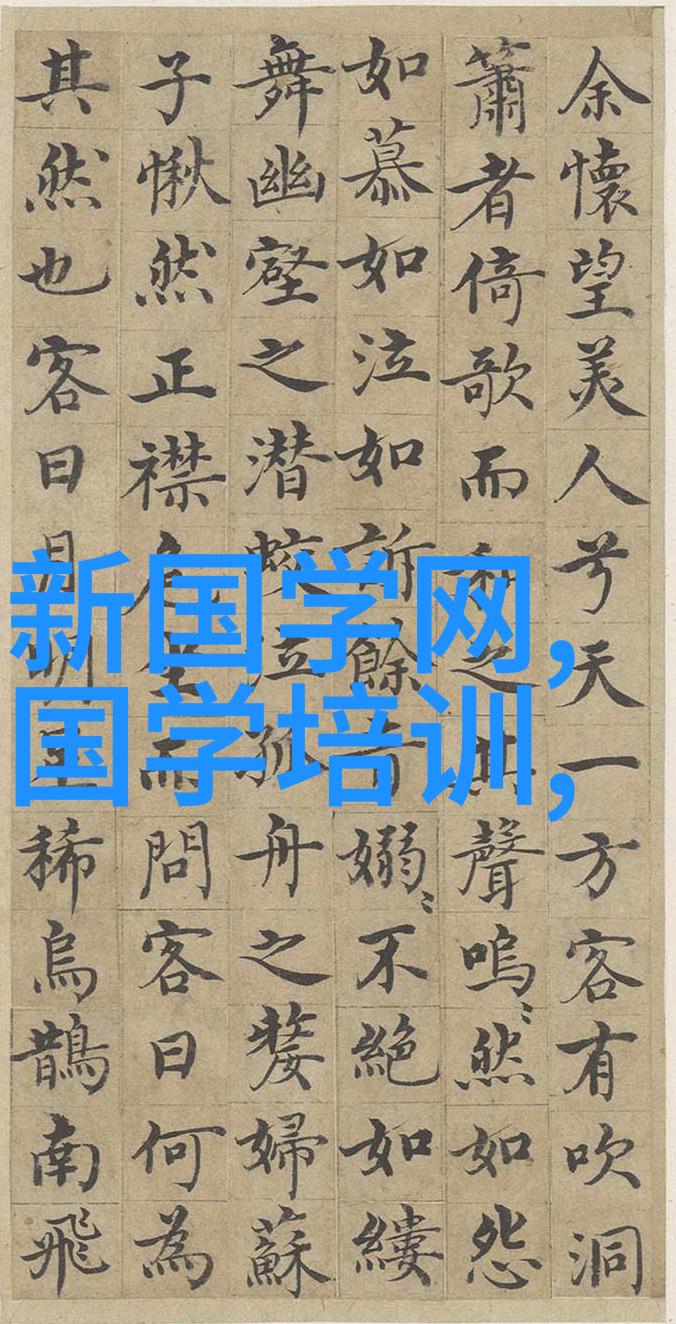 余懷望美人兮天一方客有吹洞
簫者倚歌而和之其聲嗚〻然如怨
如慕如泣如訴餘音嫋〻不絶如縷
舞幽壑之潜蛟泣孤舟之嫠婦蘇
子愀然正襟危坐而問客曰何為
其然也客曰月明星稀烏鵲南飛
新国学网,
国学培训,